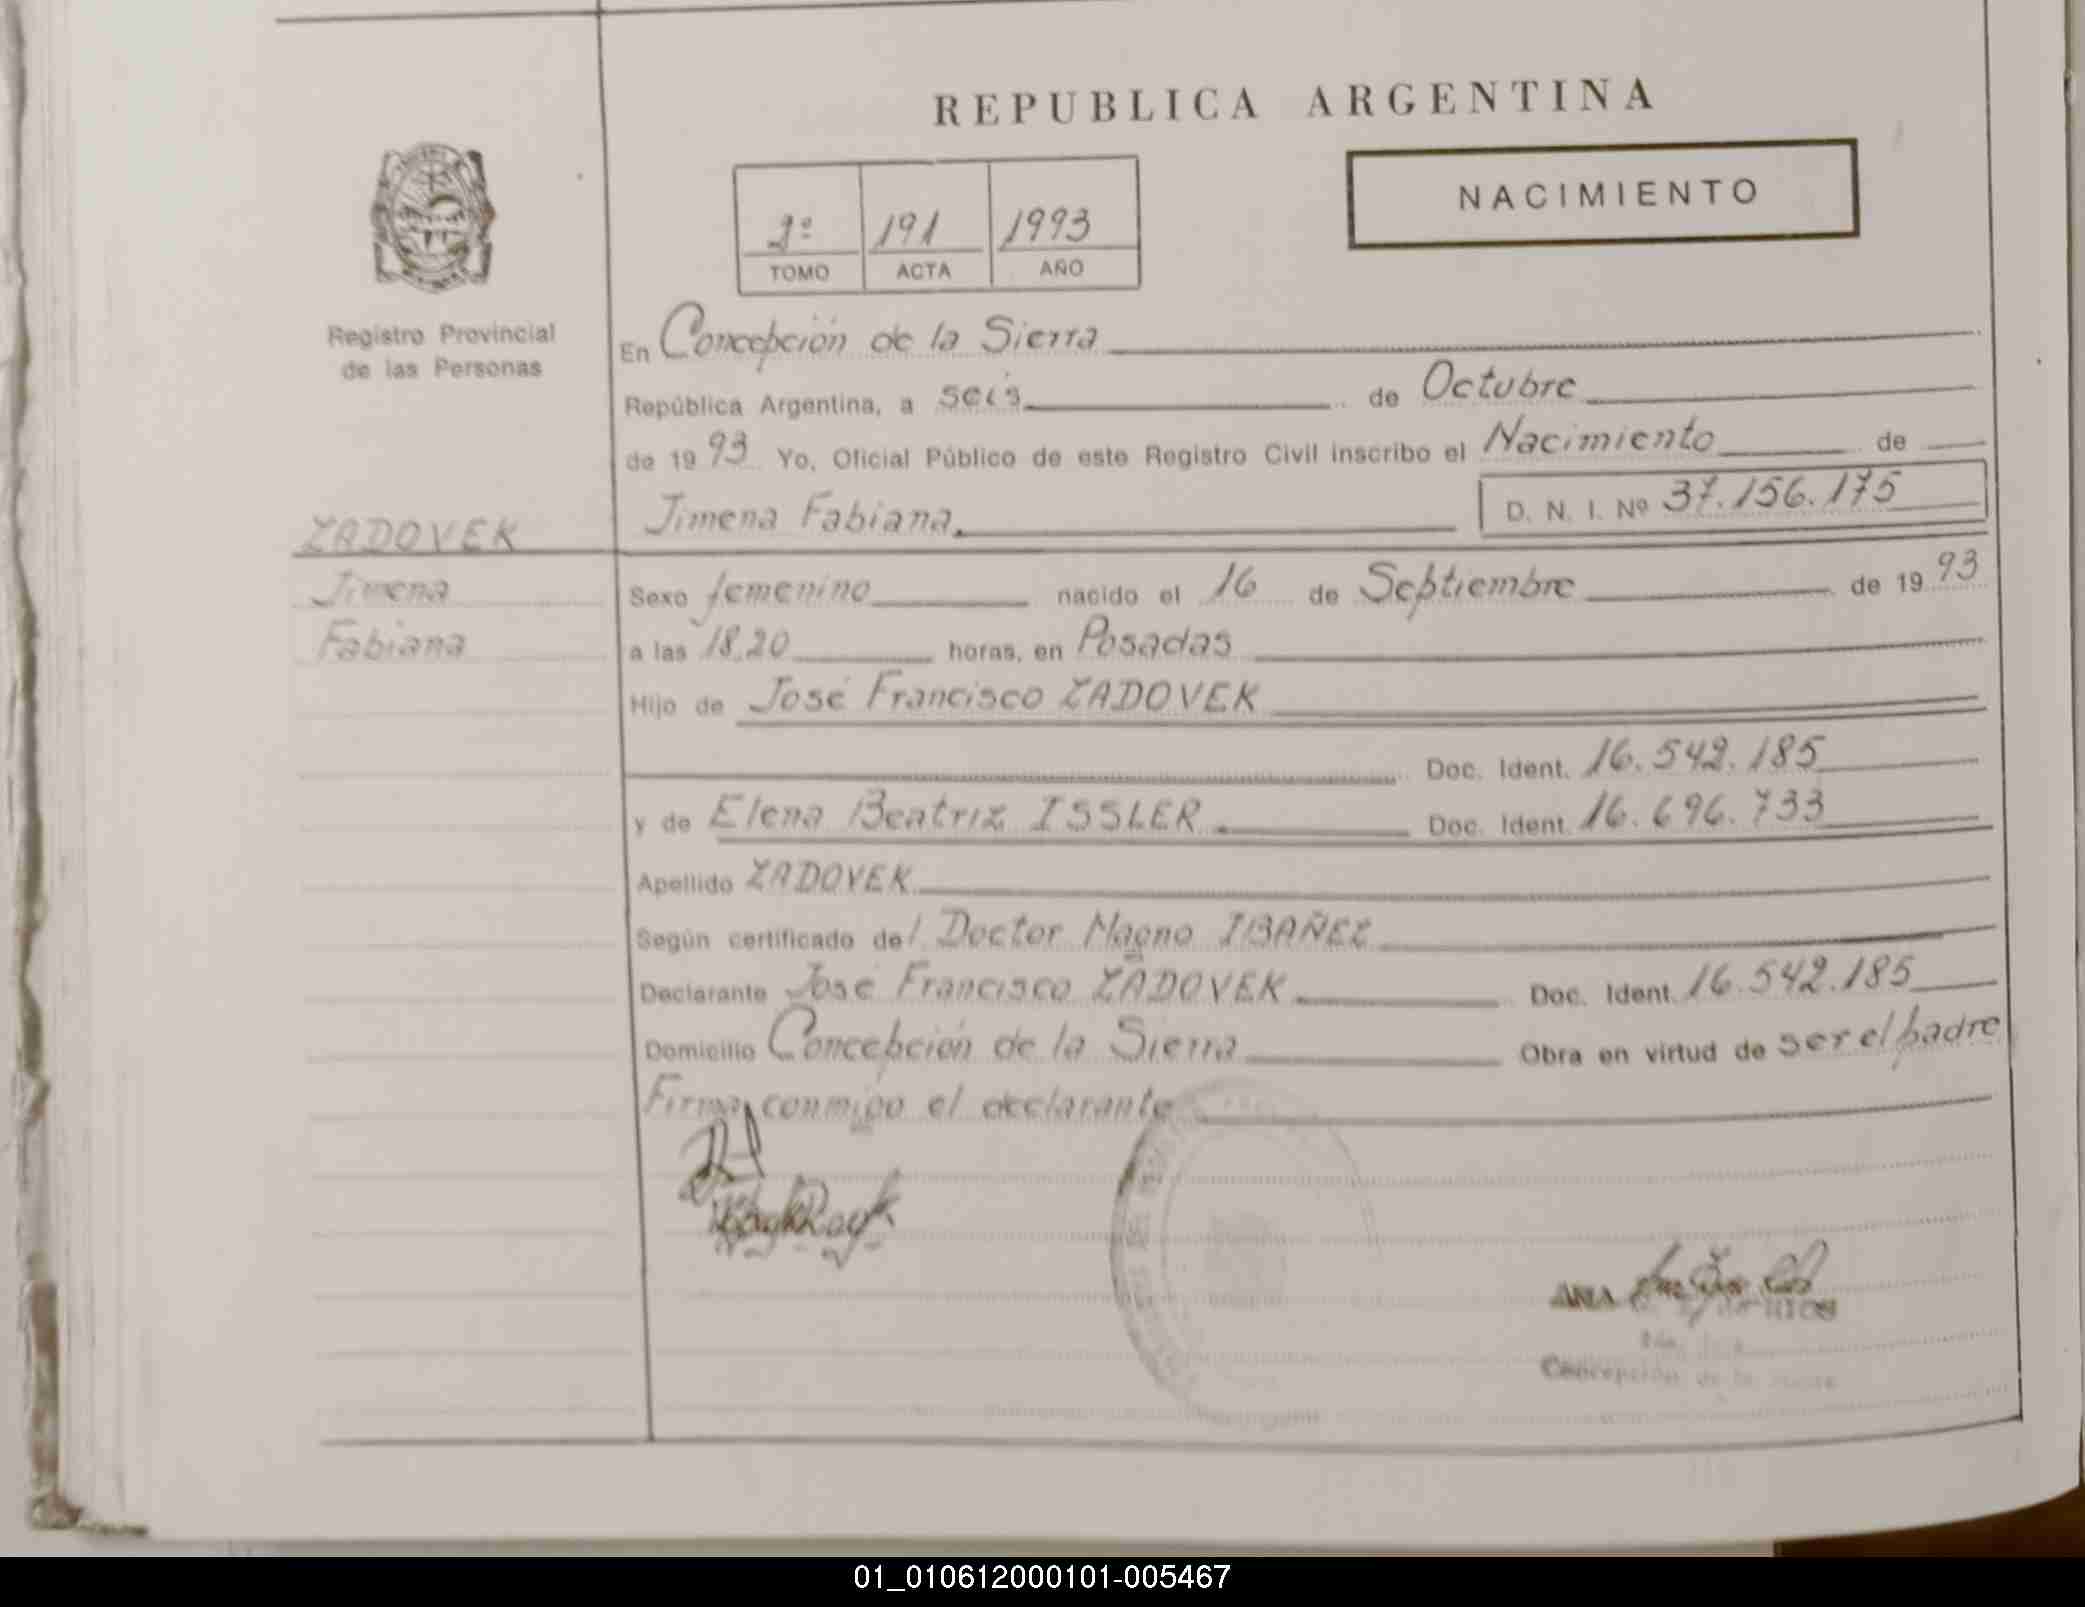 REPUBLICA ARGENTINA
NACIMIENTO
2º 191 1993
TOMO ACTA AÑO
Registro Provincial
de las Personas
ZADOVEK
Jimena
Fabiana
En Concepción de la Sierra
República Argentina, a seis de Octubre
de 1993 Yo, Oficial Público de este Registro Civil inscribo el Nacimiento de
Jimena Fabiana. D. N. I. Nº 37.156.175
Sexo femenino nacido el 16 de Septiembre de 1993
a las 18.20 horas, en Posadas
Hijo de José Francisco ZADOVEK
Doc. Ident. 16.542.185
y de Elena Beatriz ISSLER. Doc. Ident. 16.696.733
Apellido ZADOVEK
Según certificado del Doctor Magno IBAÑEZ
Declarante José Francisco ZADOVEK Doc. Ident. 16.542.185
Domicilio Concepción de la Sierra Obra en virtud de ser el padre
Firma conmigo el declarante
ANA
Concepción de la
01_010612000101-005467